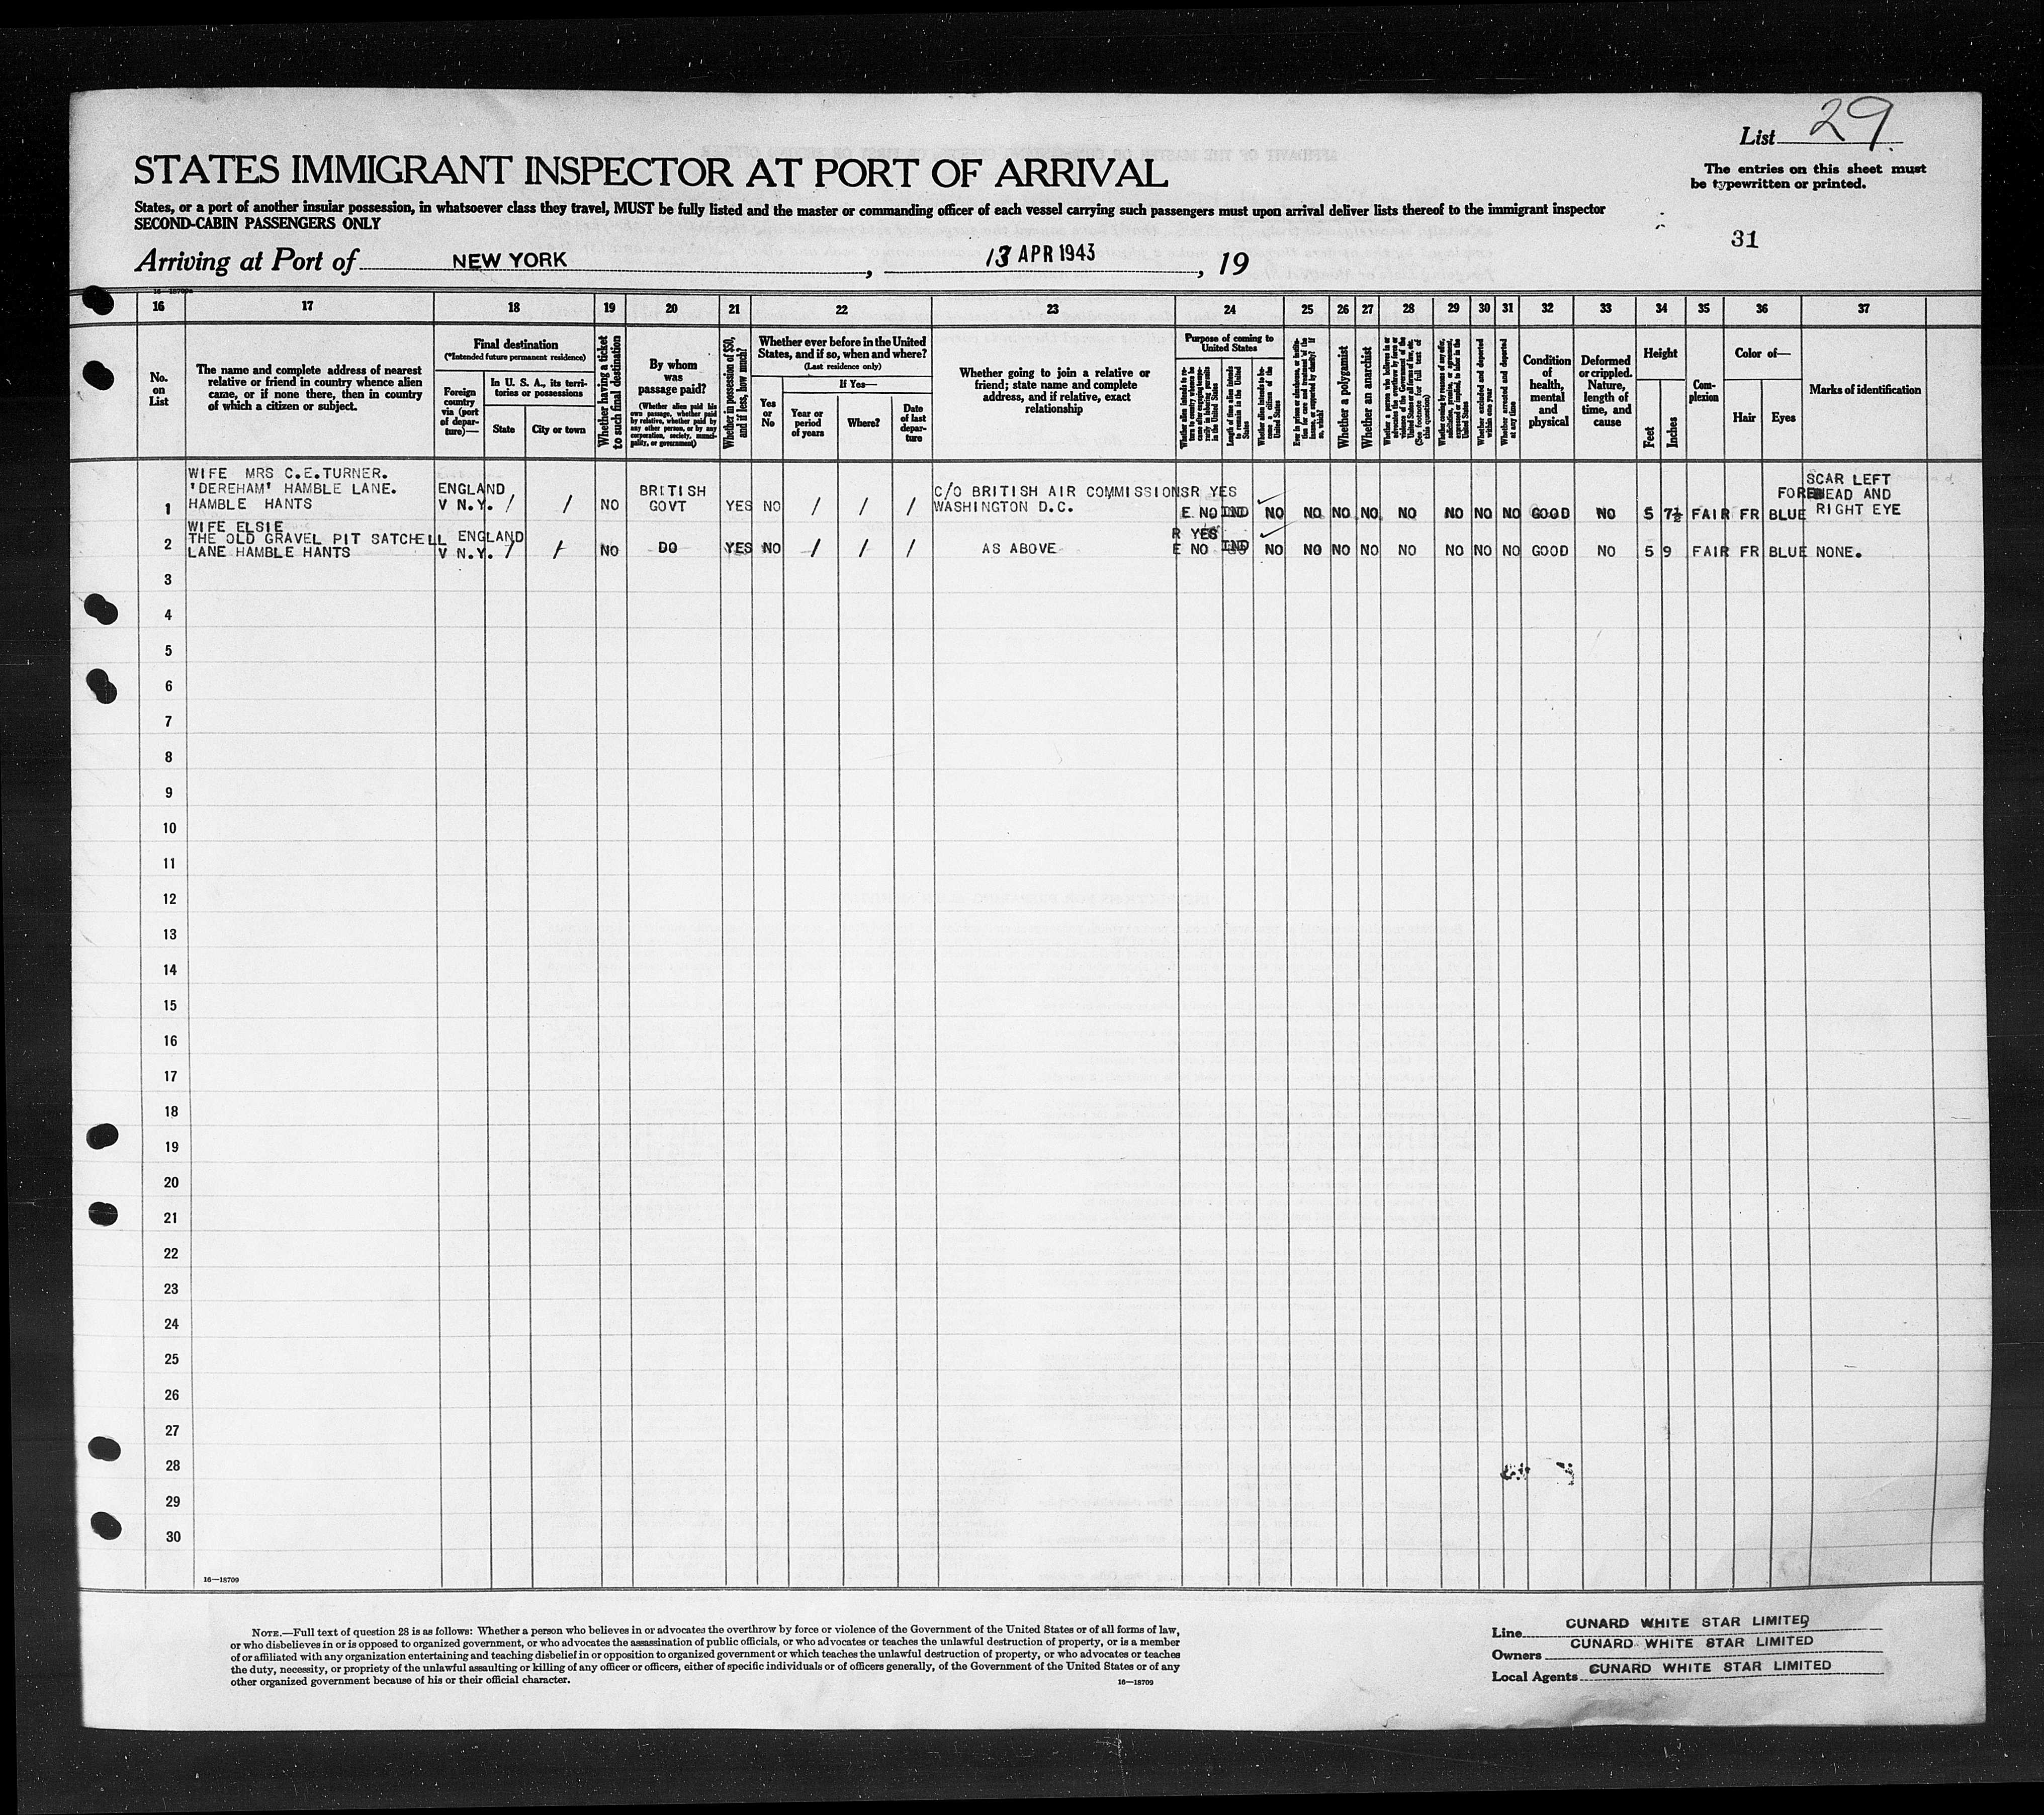 List 29
STATES IMMIGRANT INSPECTOR AT PORT OF ARRIVAL
The entries on this sheet must
be typewritten or printed.
States, or a port of another insular possession, in whatsoever class they travel, MUST be fully listed and the master or commanding officer of each vessel carrying such passengers must upon arrival deliver lists thereof to the immigrant inspector
SECOND-CABIN PASSENGERS ONLY
31
Arriving at Port of NEW YORK, 13 APR 1943, 19
16 17 18 19 20 21 22 23 24 25 26 27 28 29 30 31 32 33 34 35 36 37
No.
on
List
The name and complete address of nearest
relative or friend in country whence alien
came, or if none there, then in country
of which a citizen or subject.
Final destination
(*Intended future permanent residence)
Foreign
country
via (port
of depar-
ture)—
In U. S. A., its terri-
tories or possessions
State
City or town
Whether having a ticket
to such final destination
By whom
was
passage paid?
(Whether alien paid his
own passage, whether paid
by relative, whether paid by
any other person, or by any
corporation, society, munici-
pality, or government)
Whether in possession of $50,
and if less, how much?
Whether ever before in the United
States, and if so, when and where?
(Last residence only)
Yes
or
No
If Yes—
Year or
period
of years
Where?
Date
of last
depar-
ture
Whether going to join a relative or
friend; state name and complete
address, and if relative, exact
relationship
Purpose of coming to
United States
Length of time alien intends
to remain in the United
States
Whether alien intends to be-
come a citizen of the
United States
Whether a polygamist
Whether an anarchist
(See footnote for full text of
this question)
Whether excluded and deported
within one year
Whether arrested and deported
at any time
Condition
of
health,
mental
and
physical
Deformed
or crippled.
Nature,
length of
time, and
cause
Height
Feet
Inches
Com-
plexion
Color of—
Hair
Eyes
Marks of identification
WIFE MRS C.E.TURNER.
'DEREHAM' HAMBLE LANE.
HAMBLE HANTS
1 ENGLAND V N.Y. / / NO BRITISH GOVT YES NO / / / C/O BRITISH AIR COMMISSIONS WASHINGTON D.C. R YES E NO IND NO NO NO NO NO NO NO NO GOOD NO 5 7½ FAIR FR BLUE SCAR LEFT FOREHEAD AND RIGHT EYE
WIFE ELSIE
THE OLD GRAVEL PIT SATCHELL
LANE HAMBLE HANTS
2 ENGLAND V N.Y. / / NO DO YES NO / / / AS ABOVE R YES E NO IND NO NO NO NO NO NO NO NO GOOD NO 5 9 FAIR FR BLUE NONE.
3
4
5
6
7
8
9
10
11
12
13
14
15
16
17
18
19
20
21
22
23
24
25
26
27
28
29
30
16—18709
NOTE.—Full text of question 28 is as follows: Whether a person who believes in or advocates the overthrow by force or violence of the Government of the United States or of all forms of law,
or who disbelieves in or is opposed to organized government, or who advocates the assassination of public officials, or who advocates or teaches the unlawful destruction of property, or is a member
of or affiliated with any organization entertaining and teaching disbelief in or opposition to organized government or which teaches the unlawful destruction of property, or who advocates or teaches
the duty, necessity, or propriety of the unlawful assaulting or killing of any officer or officers, either of specific individuals or of officers generally, of the Government of the United States or of any
other organized government because of his or their official character.
16—18709
Line CUNARD WHITE STAR LIMITED
Owners CUNARD WHITE STAR LIMITED
Local Agents CUNARD WHITE STAR LIMITED